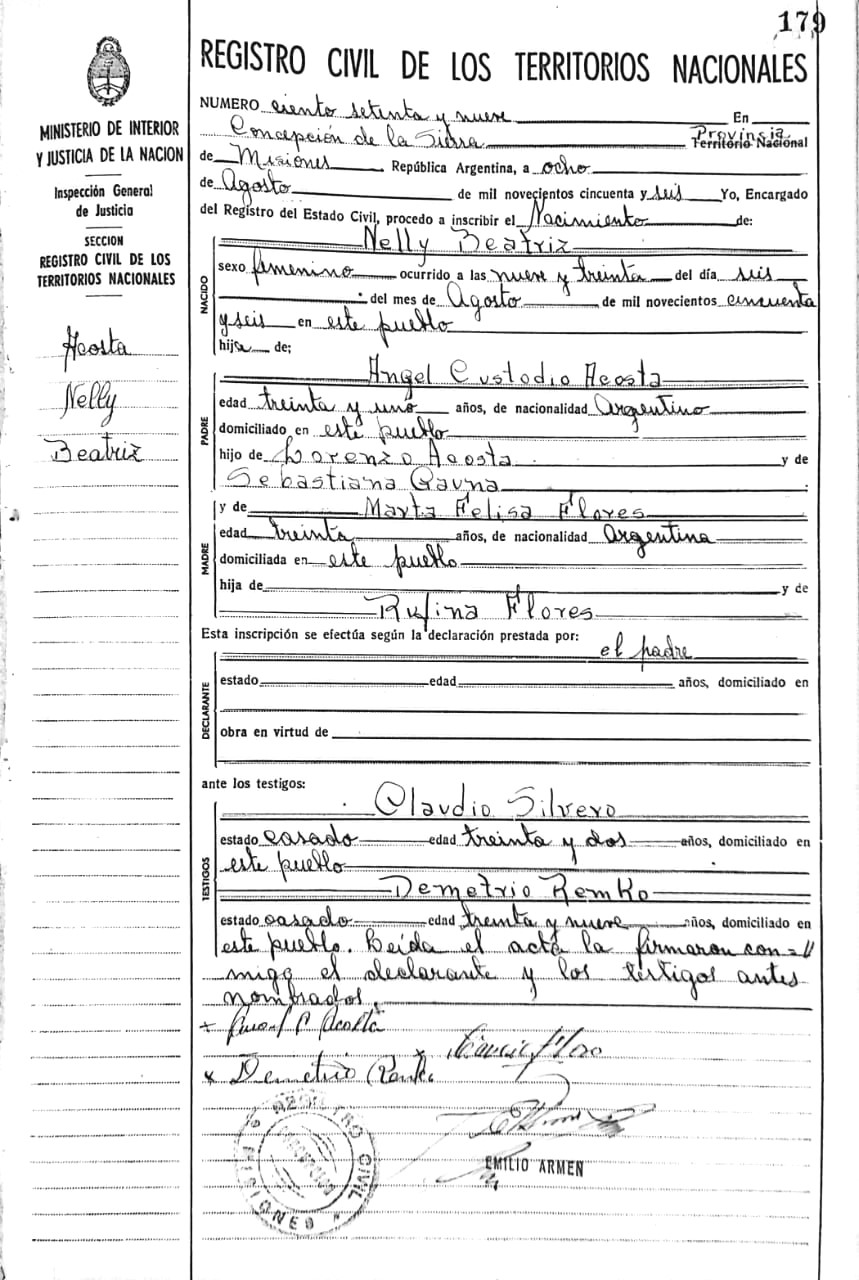 179
REGISTRO CIVIL DE LOS TERRITORIOS NACIONALES
MINISTERIO DE INTERIOR
Y JUSTICIA DE LA NACION
Inspección General
de Justicia
SECCION
REGISTRO CIVIL DE LOS
TERRITORIOS NACIONALES
Acosta
Nelly
Beatriz
NUMERO ciento setenta y nueve En
Concepción de la Sierra Provincia Territorio Nacional
de Misiones República Argentina, a ocho
de Agosto de mil novecientos cincuenta y seis Yo, Encargado
del Registro del Estado Civil, procedo a inscribir el Nacimiento de:
NACIDO
Nelly Beatriz
sexo femenino ocurrido a las nueve y treinta del día seis
del mes de Agosto de mil novecientos cincuenta
y seis en este pueblo
hija de;
PADRE
Angel Custodio Acosta
edad treinta y uno años, de nacionalidad Argentino
domiciliado en este pueblo
hijo de Lorenzo Acosta y de
Sebastiana Gauna
MADRE
y de Marta Felisa Flores
edad treinta años, de nacionalidad Argentina
domiciliada en este pueblo
hija de y de
Rufina Flores
Esta inscripción se efectúa según la declaración prestada por:
el padre
DECLARANTE
estado edad años, domiciliado en
obra en virtud de
ante los testigos:
TESTIGOS
Claudio Silvero
estado casado edad treinta y dos años, domiciliado en
este pueblo
Demetrio Remko
estado casado edad treinta y nueve años, domiciliado en
este pueblo. Leída el acta la firmaron con=
migo el declarante y los testigos antes
nombrados.
Acosta
Demetrio
REGISTRO CIVIL
MISIONES
EMILIO ARMEN